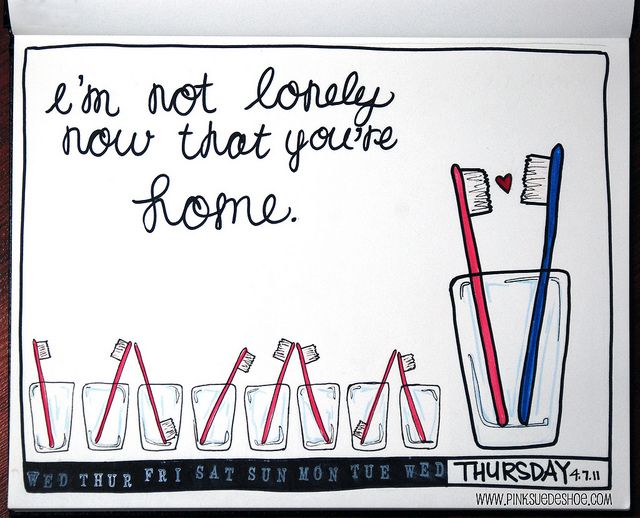 i'm not lonely
now that you're
home.
WED THUR FRI SAT SUN MON TUE WED THURSDAY 4.7.11
WWW.PINKSUEDESHOE.COM